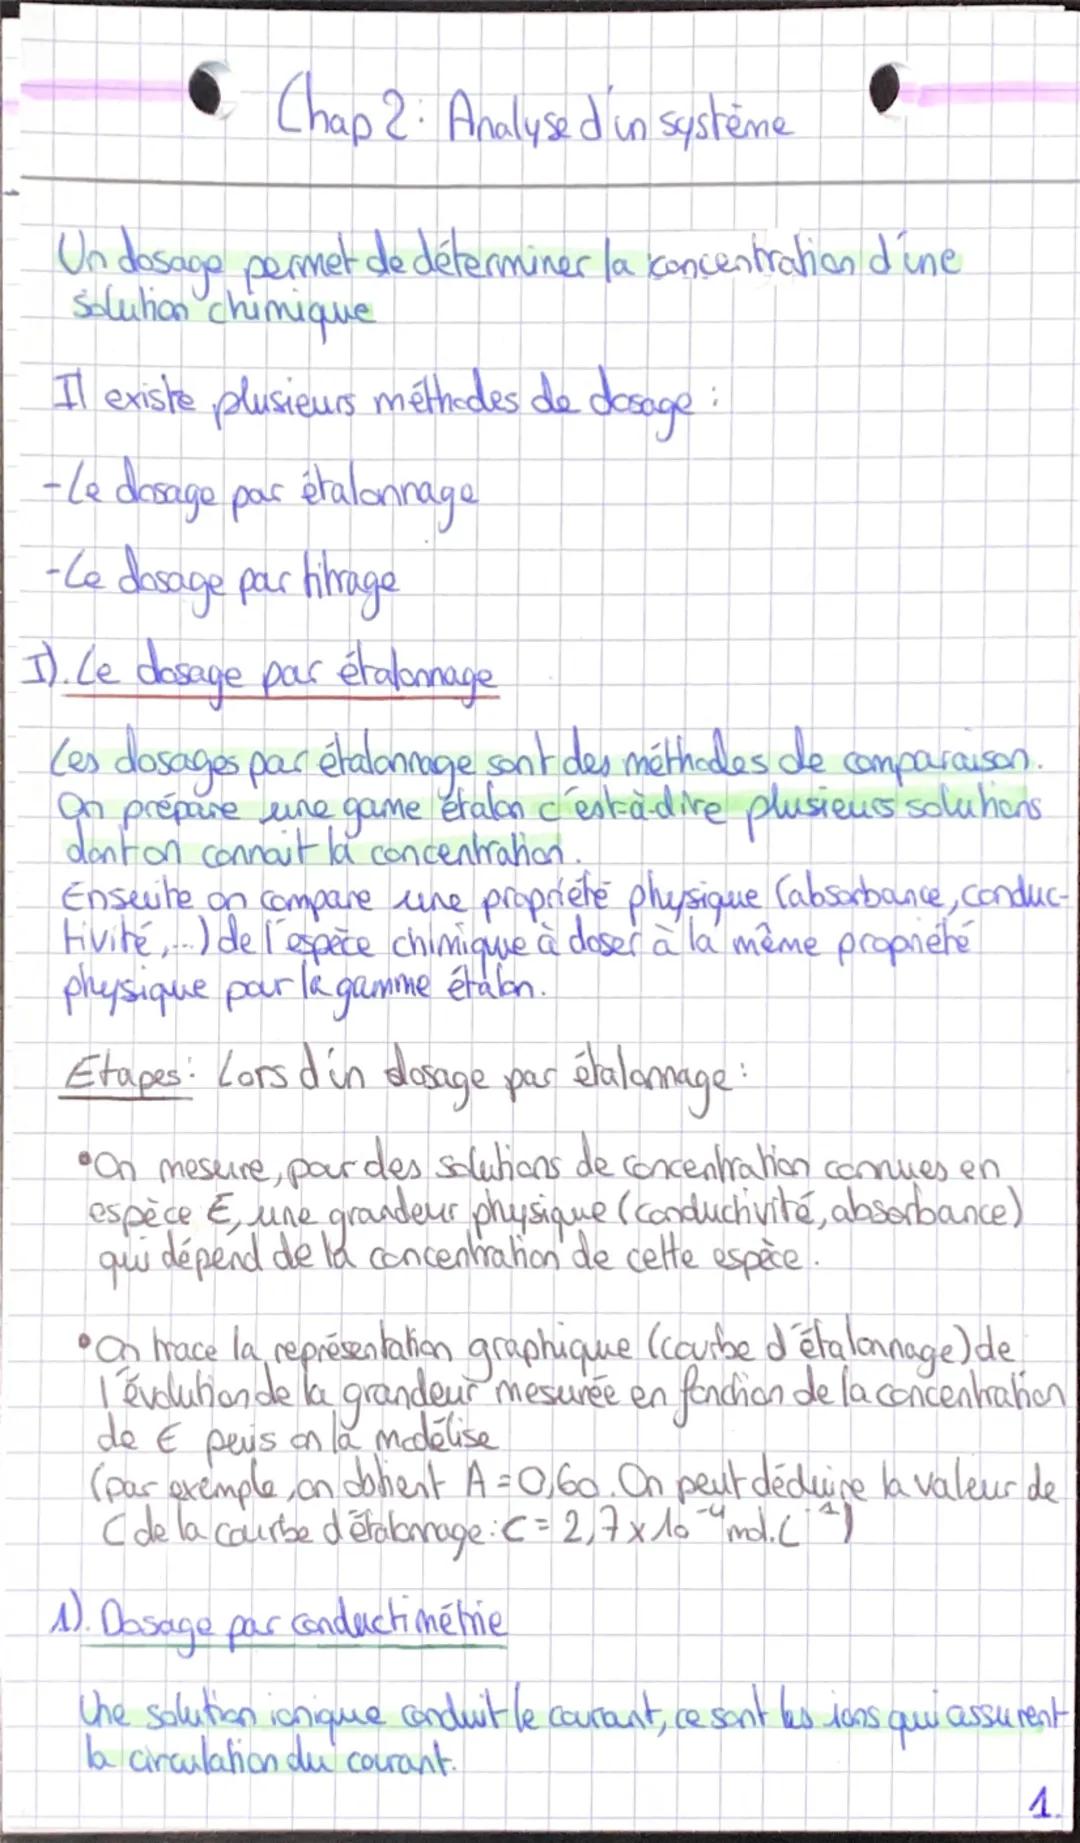 Chap 2: Analyse d'un système
Un dosage permet de déterminer la concentration d'une
solution chimique
Il existe plusieurs méthodes de dosage :
-Le dosage par étalonnage
-Le dosage par titrage
I). Le dosage par étalonnage
Les dosages par étalonnage sont des méthodes de comparaison.
On prépare une game étalon c'est-à-dire plusieurs solutions
dont on connait la concentration.
Ensuite on compare une propriété physique (absorbance, conduc-
tivité, ...) de l'espèce chimique à doser à la même propriété
physique pour la gamme étalon.
Etapes: Lors d'un dosage par étalonnage :
•On mesure, pour des solutions de concentration connues en
espèce E, une grandeur physique (conductivité, absorbance)
qui dépend de la concentration de cette espèce.
•On trace la représentation graphique (courbe d'étalonnage) de
l'évolution de la grandeur mesurée en fonction de la concentration
de E puis on la modélise
(par exemple, on obtient A = 0,60. On peut déduire la valeur de
C de la courbe d'étalonnage : C = 2,7 x 10⁻⁴ mol.L⁻¹)
1). Dosage par conductimétrie
Une solution ionique conduit le courant, ce sont les ions qui assurent
la circulation du courant.
1.